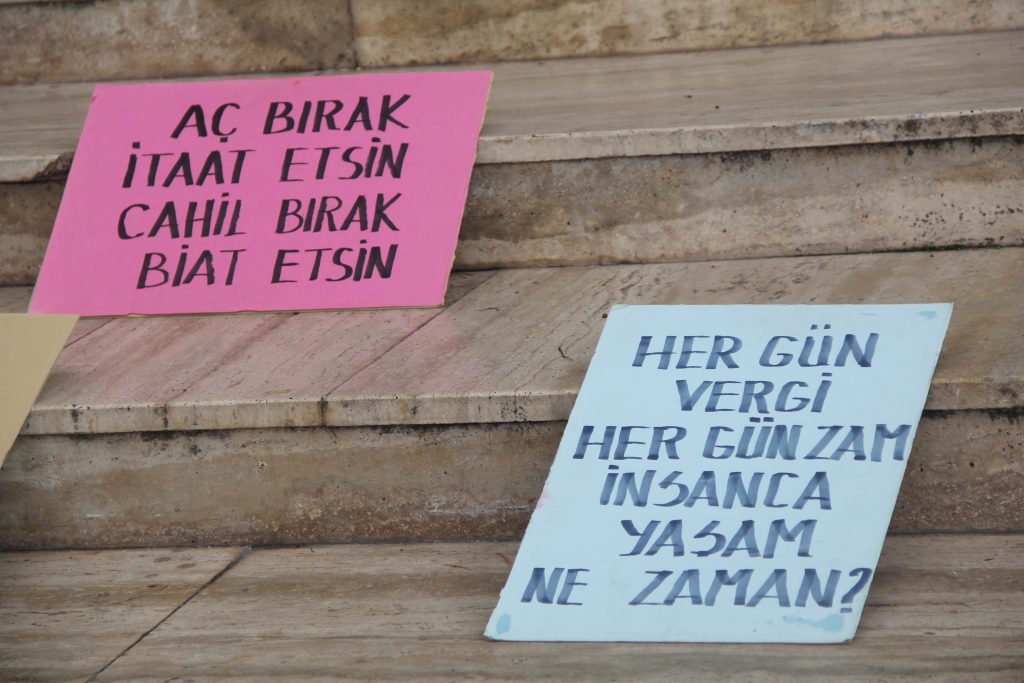 AÇ BIRAK
İTAAT ETSİN
CAHİL BIRAK
BİAT ETSİN
HER GÜN
VERGİ
HER GÜN ZAM
İNSANCA
YASAM
NE ZAMAN?